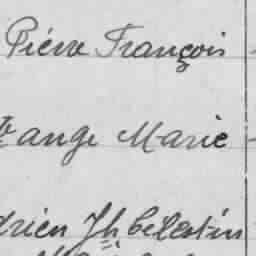 Piérre François
te ange Marie
drien Jh Celestin